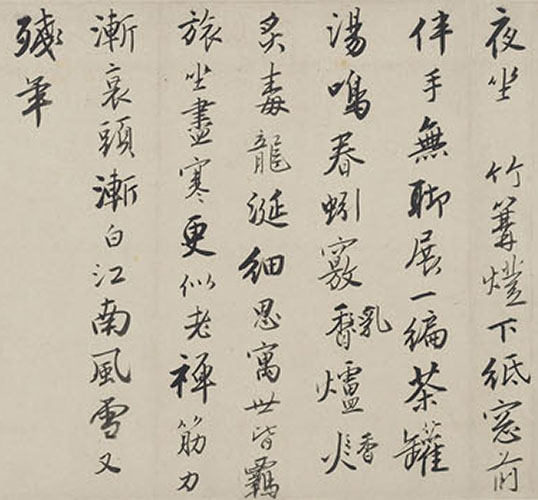 夜坐 竹篝燈下紙窓前
伴手無聊展一編茶罐
湯鳴春蚓竅乳香爐火香
炙毒龍涎細思寓世皆羈
旅坐盡寒更似老禪筋力
漸衰頭漸白江南風雪又
殘年